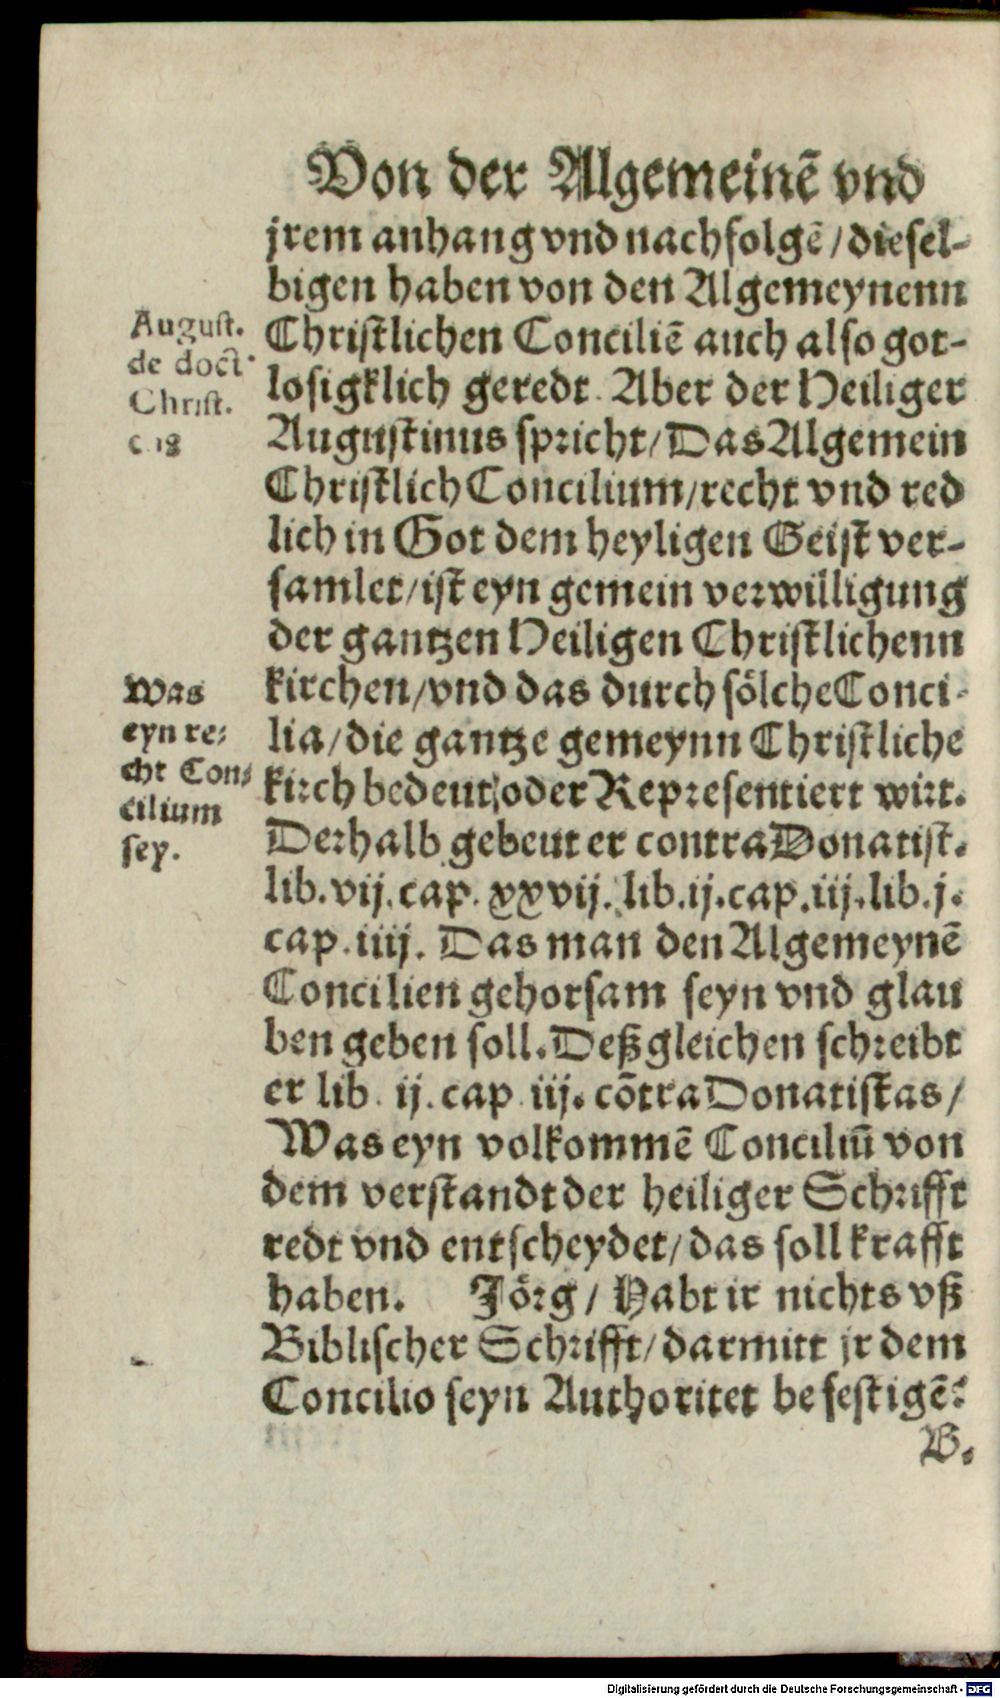 Von der Algemeinē vnd
jrem anhang vnd nachfolgē / diesel-
bigen haben von den Algemeynenn
Christlichen Conciliē auch also got-
losigklich geredt. Aber der Heiliger
Augustinus spricht / Das Algemein
Christlich Concilium / recht vnd red
lich in Got dem heyligen Geist ver-
samlet / ist eyn gemein verwilligung
der gantzen Heiligen Christlichenn
kirchen / vnd das durch sölche Conci-
lia / die gantze gemeynn Christliche
kirch bedeut / oder Representiert wirt.
Derhalb gebeut er contra Donatist.
lib. vij. cap. xxvij. lib. ij. cap. iij. lib. j.
cap. iiij. Das man den Algemeynē
Concilien gehorsam seyn vnd glau
ben geben soll. Deßgleichen schreibt
er lib. ij. cap. iij. cōtra Donatistas /
Was eyn volkommē Conciliū von
dem verstandt der heiliger Schrifft
redt vnd entscheydet / das soll krafft
haben. Jörg / Habt ir nichts vß
Biblischer Schrifft / darmitt jr dem
Concilio seyn Authoritet befestigē?
B.
August.
de doct.
Christ.
c. 18
Was
eyn re-
cht Con-
cilium
sey.
Digitalisierung gefördert durch die Deutsche Forschungsgemeinschaft - DFG